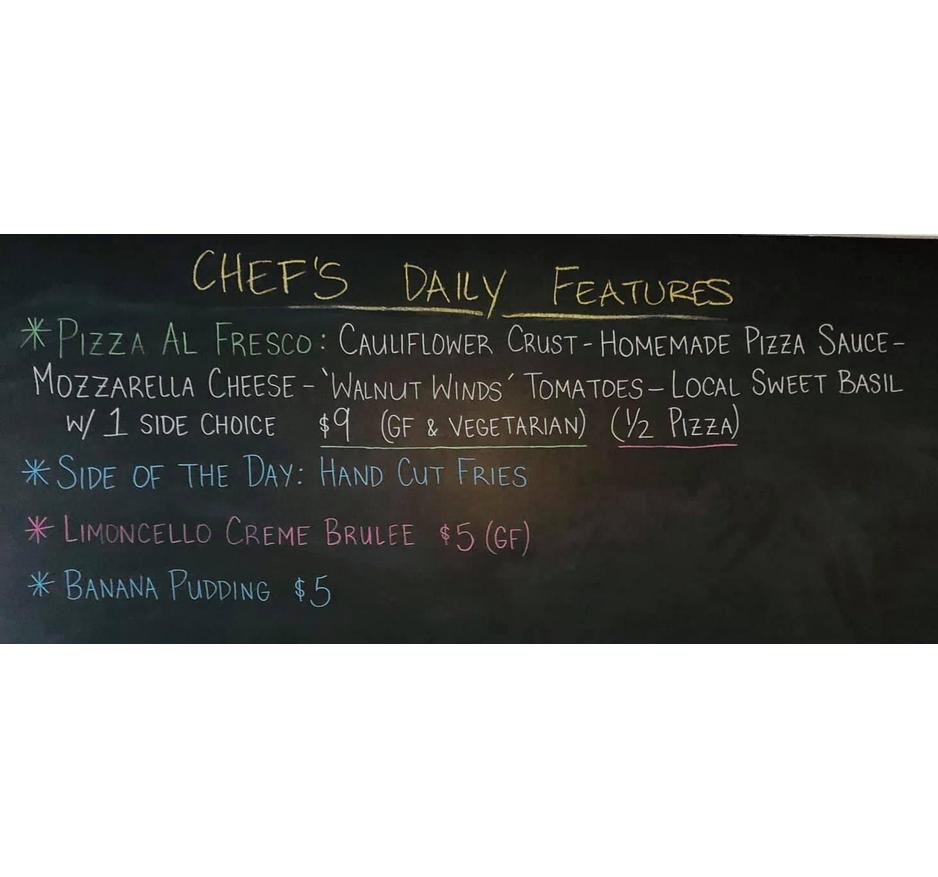 CHEF'S DAILY FEATURES
* PIZZA AL FRESCO: CAULIFLOWER CRUST - HOMEMADE PIZZA SAUCE -
MOZZARELLA CHEESE - 'WALNUT WINDS' TOMATOES - LOCAL SWEET BASIL
W/ 1 SIDE CHOICE $9 (GF & VEGETARIAN) (1/2 PIZZA)
* SIDE OF THE DAY: HAND CUT FRIES
* LIMONCELLO CREME BRULEE $5 (GF)
* BANANA PUDDING $5